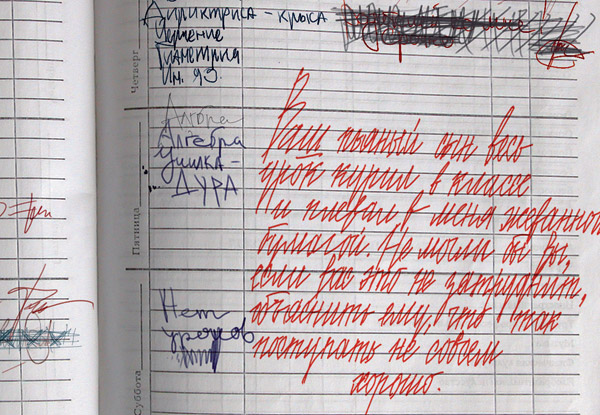 Дириктриса - крыса
Черчение
Гиаметрия
Ин. яз.
Четверг
В
Алгебра
Алгебра
Училка -
ДУРА
Пятница
Ваш пьяный сын весь
урок курил в классе
и плевал в меня жеванной
бумагой. Не могли бы вы,
если вас это не затруднит,
объяснить ему, что так
поступать не совсем
хорошо.
Нет
уроков
Суббота